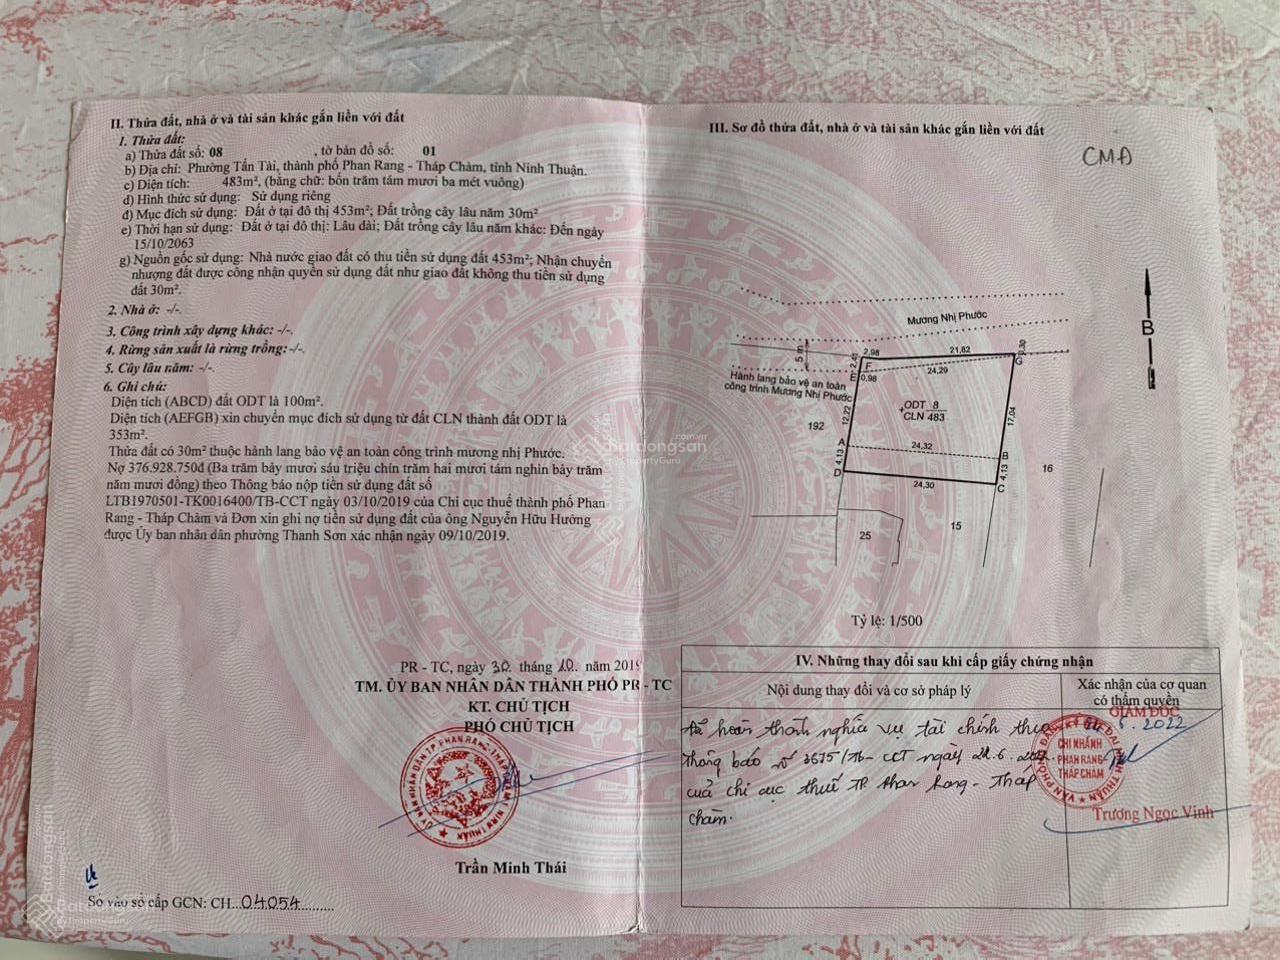 II. Thửa đất, nhà ở và tài sản khác gắn liền với đất
1. Thửa đất:
a) Thửa đất số: 08 , tờ bản đồ số: 01
b) Địa chỉ: Phường Tấn Tài, thành phố Phan Rang - Tháp Chàm, tỉnh Ninh Thuận.
c) Diện tích: 483m², (bằng chữ: bốn trăm tám mươi ba mét vuông)
d) Hình thức sử dụng: Sử dụng riêng
đ) Mục đích sử dụng: Đất ở tại đô thị 453m²; Đất trồng cây lâu năm 30m²
e) Thời hạn sử dụng: Đất ở tại đô thị: Lâu dài; Đất trồng cây lâu năm khác: Đến ngày
15/10/2063
g) Nguồn gốc sử dụng: Nhà nước giao đất có thu tiền sử dụng đất 453m²; Nhận chuyển
nhượng đất được công nhận quyền sử dụng đất như giao đất không thu tiền sử dụng
đất 30m².
2. Nhà ở: -/-.
3. Công trình xây dựng khác: -/-.
4. Rừng sản xuất là rừng trồng: -/-.
5. Cây lâu năm: -/-.
6. Ghi chú:
Diện tích (ABCD) đất ODT là 100m².
Diện tích (AEFGB) xin chuyển mục đích sử dụng từ đất CLN thành đất ODT là
353m².
Thửa đất có 30m² thuộc hành lang bảo vệ an toàn công trình mương nhị Phước.
Nợ 376.928.750đ (Ba trăm bảy mươi sáu triệu chín trăm hai mươi tám nghìn bảy trăm
năm mươi đồng) theo Thông báo nộp tiền sử dụng đất số
LTB1970501-TK0016400/TB-CCT ngày 03/10/2019 của Chi cục thuế thành phố Phan
Rang - Tháp Chàm và Đơn xin ghi nợ tiền sử dụng đất của ông Nguyễn Hữu Hướng
được Ủy ban nhân dân phường Thanh Sơn xác nhận ngày 09/10/2019.
PR - TC, ngày 30 tháng 10 năm 2019
TM. ỦY BAN NHÂN DÂN THÀNH PHỐ PR - TC
KT. CHỦ TỊCH
PHÓ CHỦ TỊCH
Trần Minh Thái
Số vào sổ cấp GCN: CH 04054
III. Sơ đồ thửa đất, nhà ở và tài sản khác gắn liền với đất
CMĐ
B
Mương Nhị Phước
5 m
2,41
2,98
21,82
0,30
F
G
E
0,98
24,29
Hành lang bảo vệ an toàn
công trình Mương Nhị Phước
12,22
ODT 8
CLN 483
17,04
192
A
24,32
B
4,13
4,13
D
24,30
C
16
15
25
Tỷ lệ: 1/500
IV. Những thay đổi sau khi cấp giấy chứng nhận
Nội dung thay đổi và cơ sở pháp lý
Xác nhận của cơ quan
có thẩm quyền
Đã hoàn thành nghĩa vụ tài chính theo
thông báo số 3675/TB-CCT ngày 22.6.2022
của chi cục thuế TP. Phan Rang - Tháp
Chàm.
GIÁM ĐỐC
6.2022
CHI NHÁNH
PHAN RANG-
THÁP CHÀM
Trương Ngọc Vinh
Batdongsan
.com.vn
by PropertyGuru
Batdongsan
by PropertyGuru